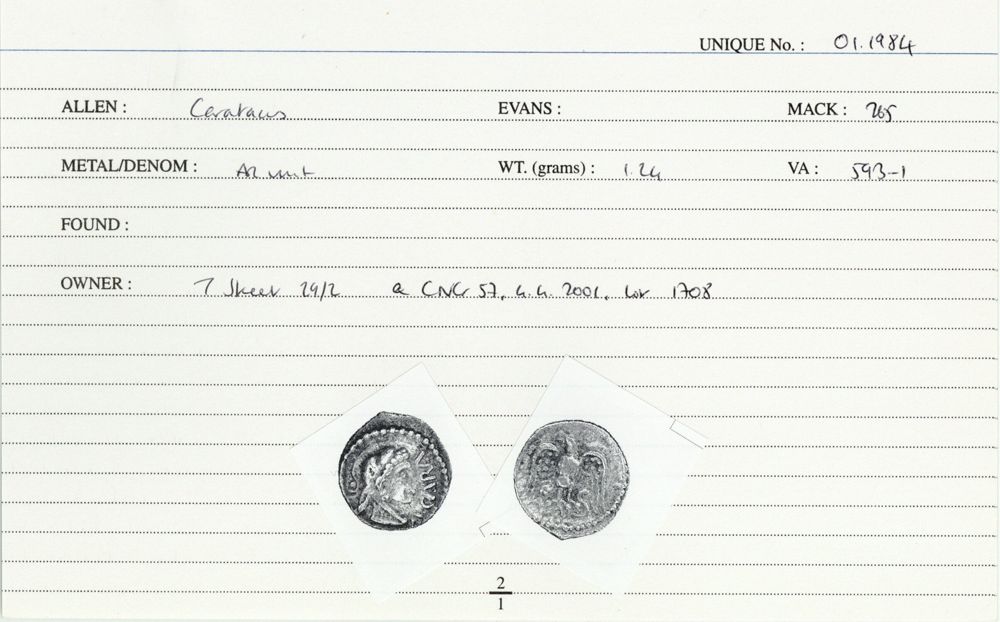 UNIQUE No. : 01.1984
ALLEN : Caratacus EVANS : MACK : 265
METAL/DENOM : AR unit WT. (grams) : 1.24 VA : 593-1
FOUND :
OWNER : T Skeet 29/2 ex CNG 57, 4.4.2001, lot 1708
CARA
2
1